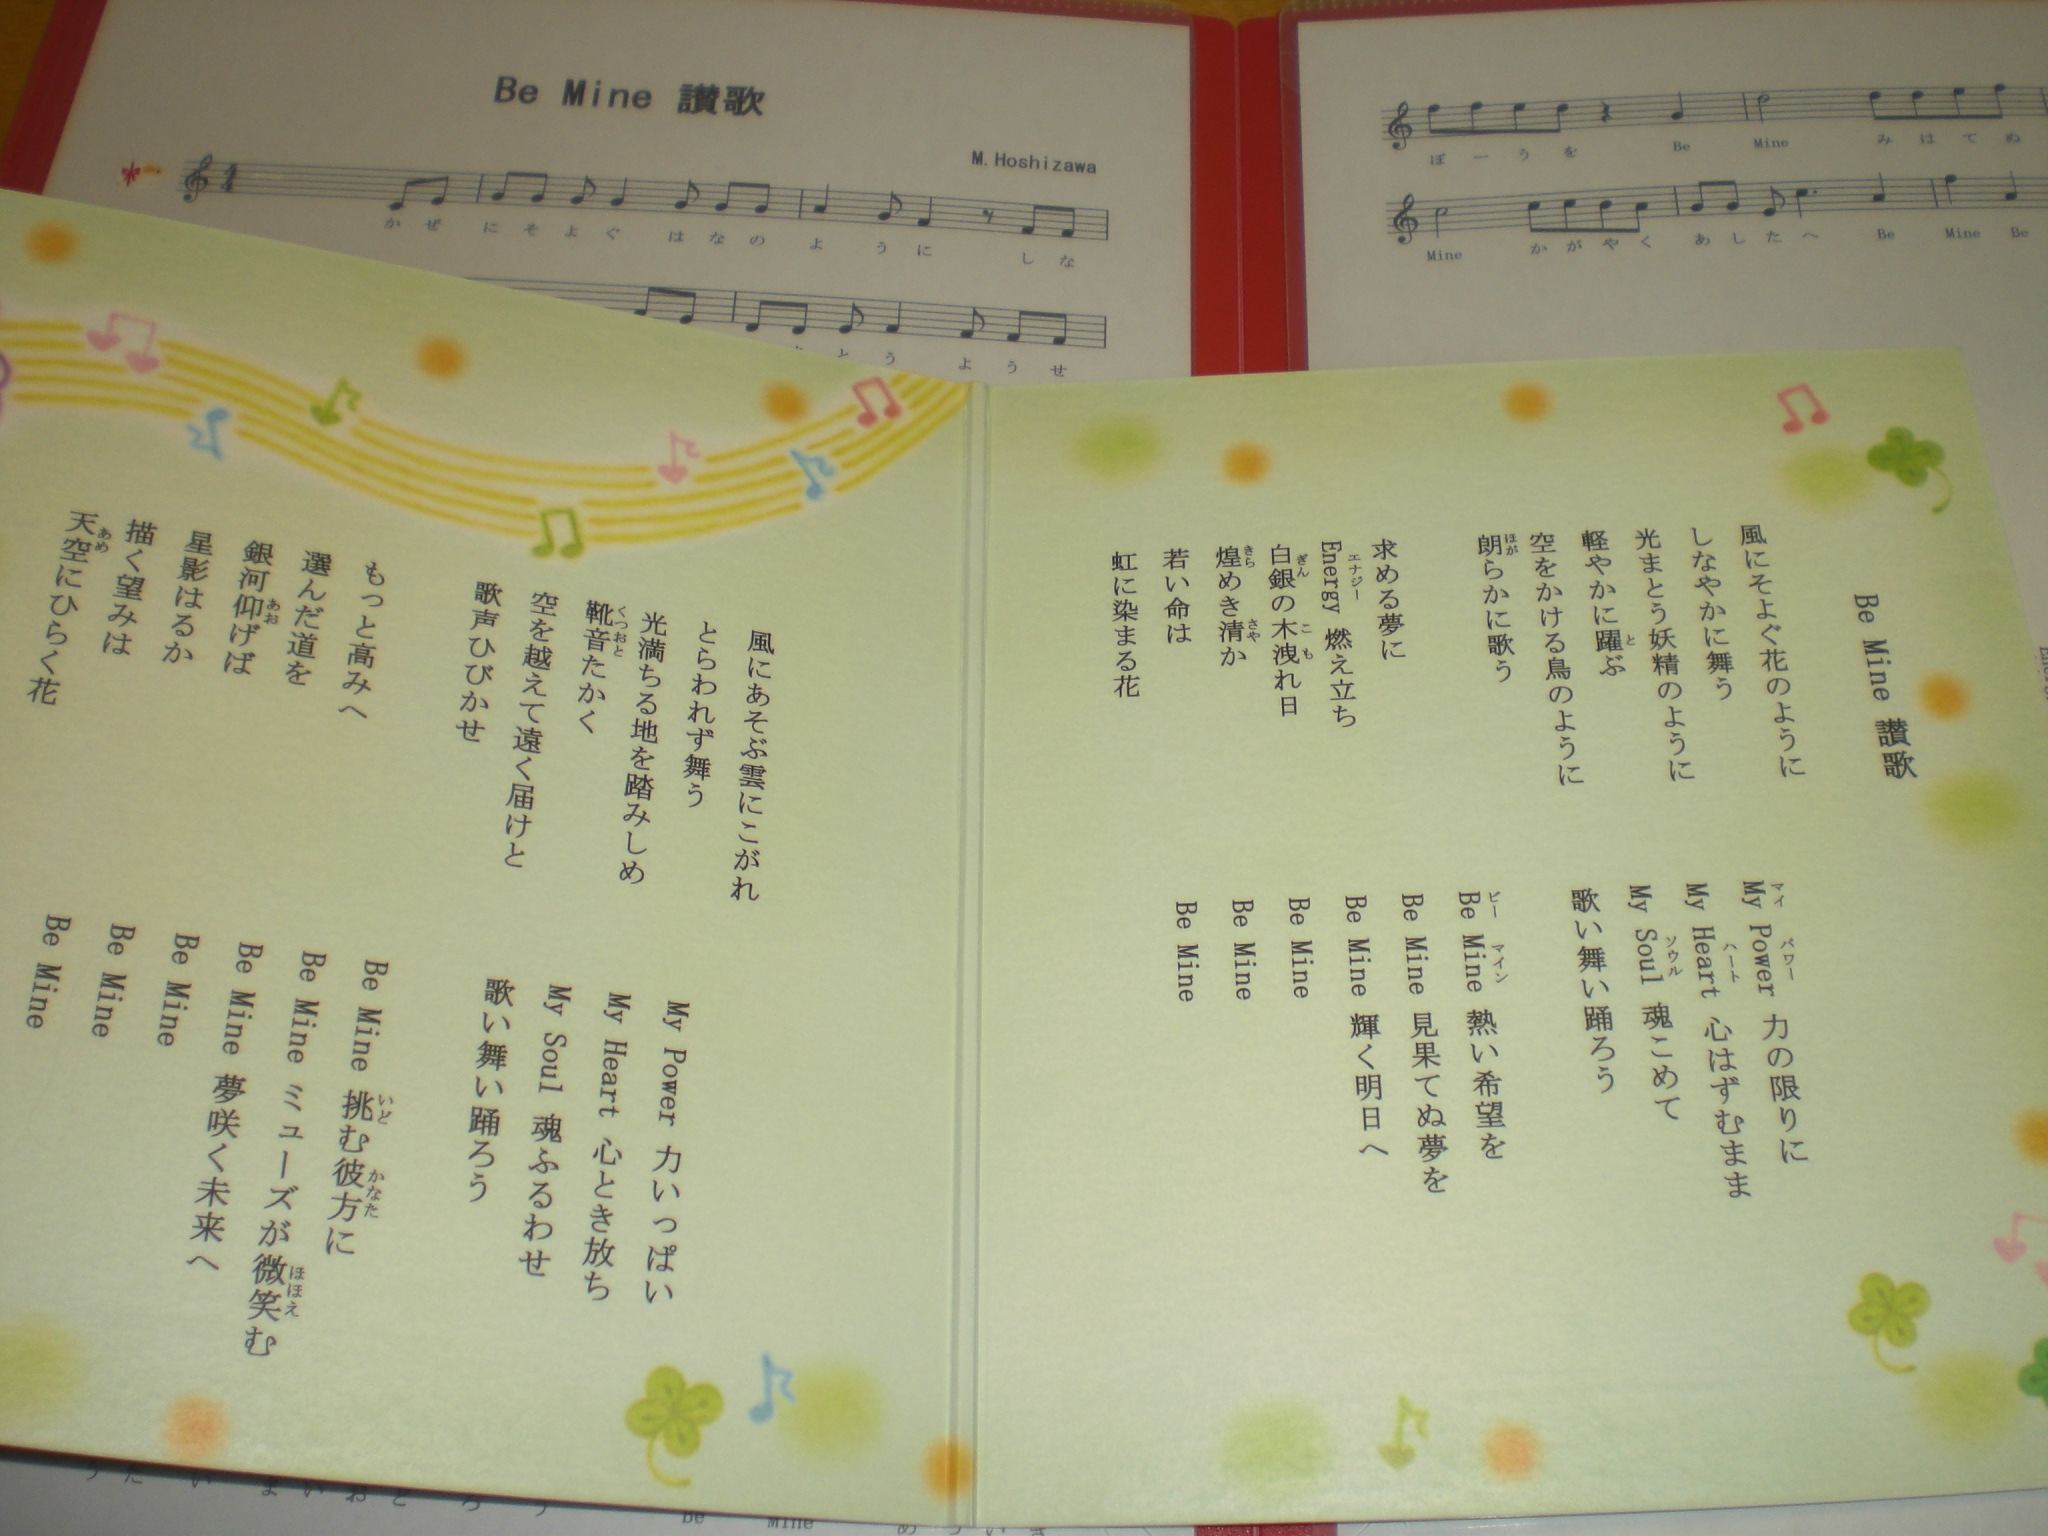 Be Mine 讃歌
M.Hoshizawa
かぜ にそよぐ はなの ように しな
とう ようせ
ぼーうを Be Mine みはてぬ
Mine かがやく あしたへ Be Mine Be
Be Mine 讃歌
風にそよぐ花のように
しなやかに舞う
光まとう妖精のように
軽やかに躍ぶ
と
空をかける鳥のように
朗らかに歌う
ほが
求める夢に
Energy 燃え立ち
エナジー
白銀の木洩れ日
ぎん こ も
煌めき清か
きら さや
若い命は
虹に染まる花
My Power 力の限りに
マイ パワー
My Heart 心はずむまま
ハート
My Soul 魂こめて
ソウル
歌い舞い踊ろう
Be Mine 熱い希望を
ビー マイン
Be Mine 見果てぬ夢を
Be Mine 輝く明日へ
Be Mine
Be Mine
Be Mine
風にあそぶ雲にこがれ
とらわれず舞う
光満ちる地を踏みしめ
靴音たかく
くつおと
空を越えて遠く届けと
歌声ひびかせ
もっと高みへ
選んだ道を
銀河仰げば
あお
星影はるか
描く望みは
天空にひらく花
あめ
My Power 力いっぱい
My Heart 心とき放ち
My Soul 魂ふるわせ
歌い舞い踊ろう
Be Mine 挑む彼方に
いど かなた
Be Mine ミューズが微笑む
ほほえ
Be Mine 夢咲く未来へ
Be Mine
Be Mine
Be Mine
うた い まいおど ろ う Be Mine